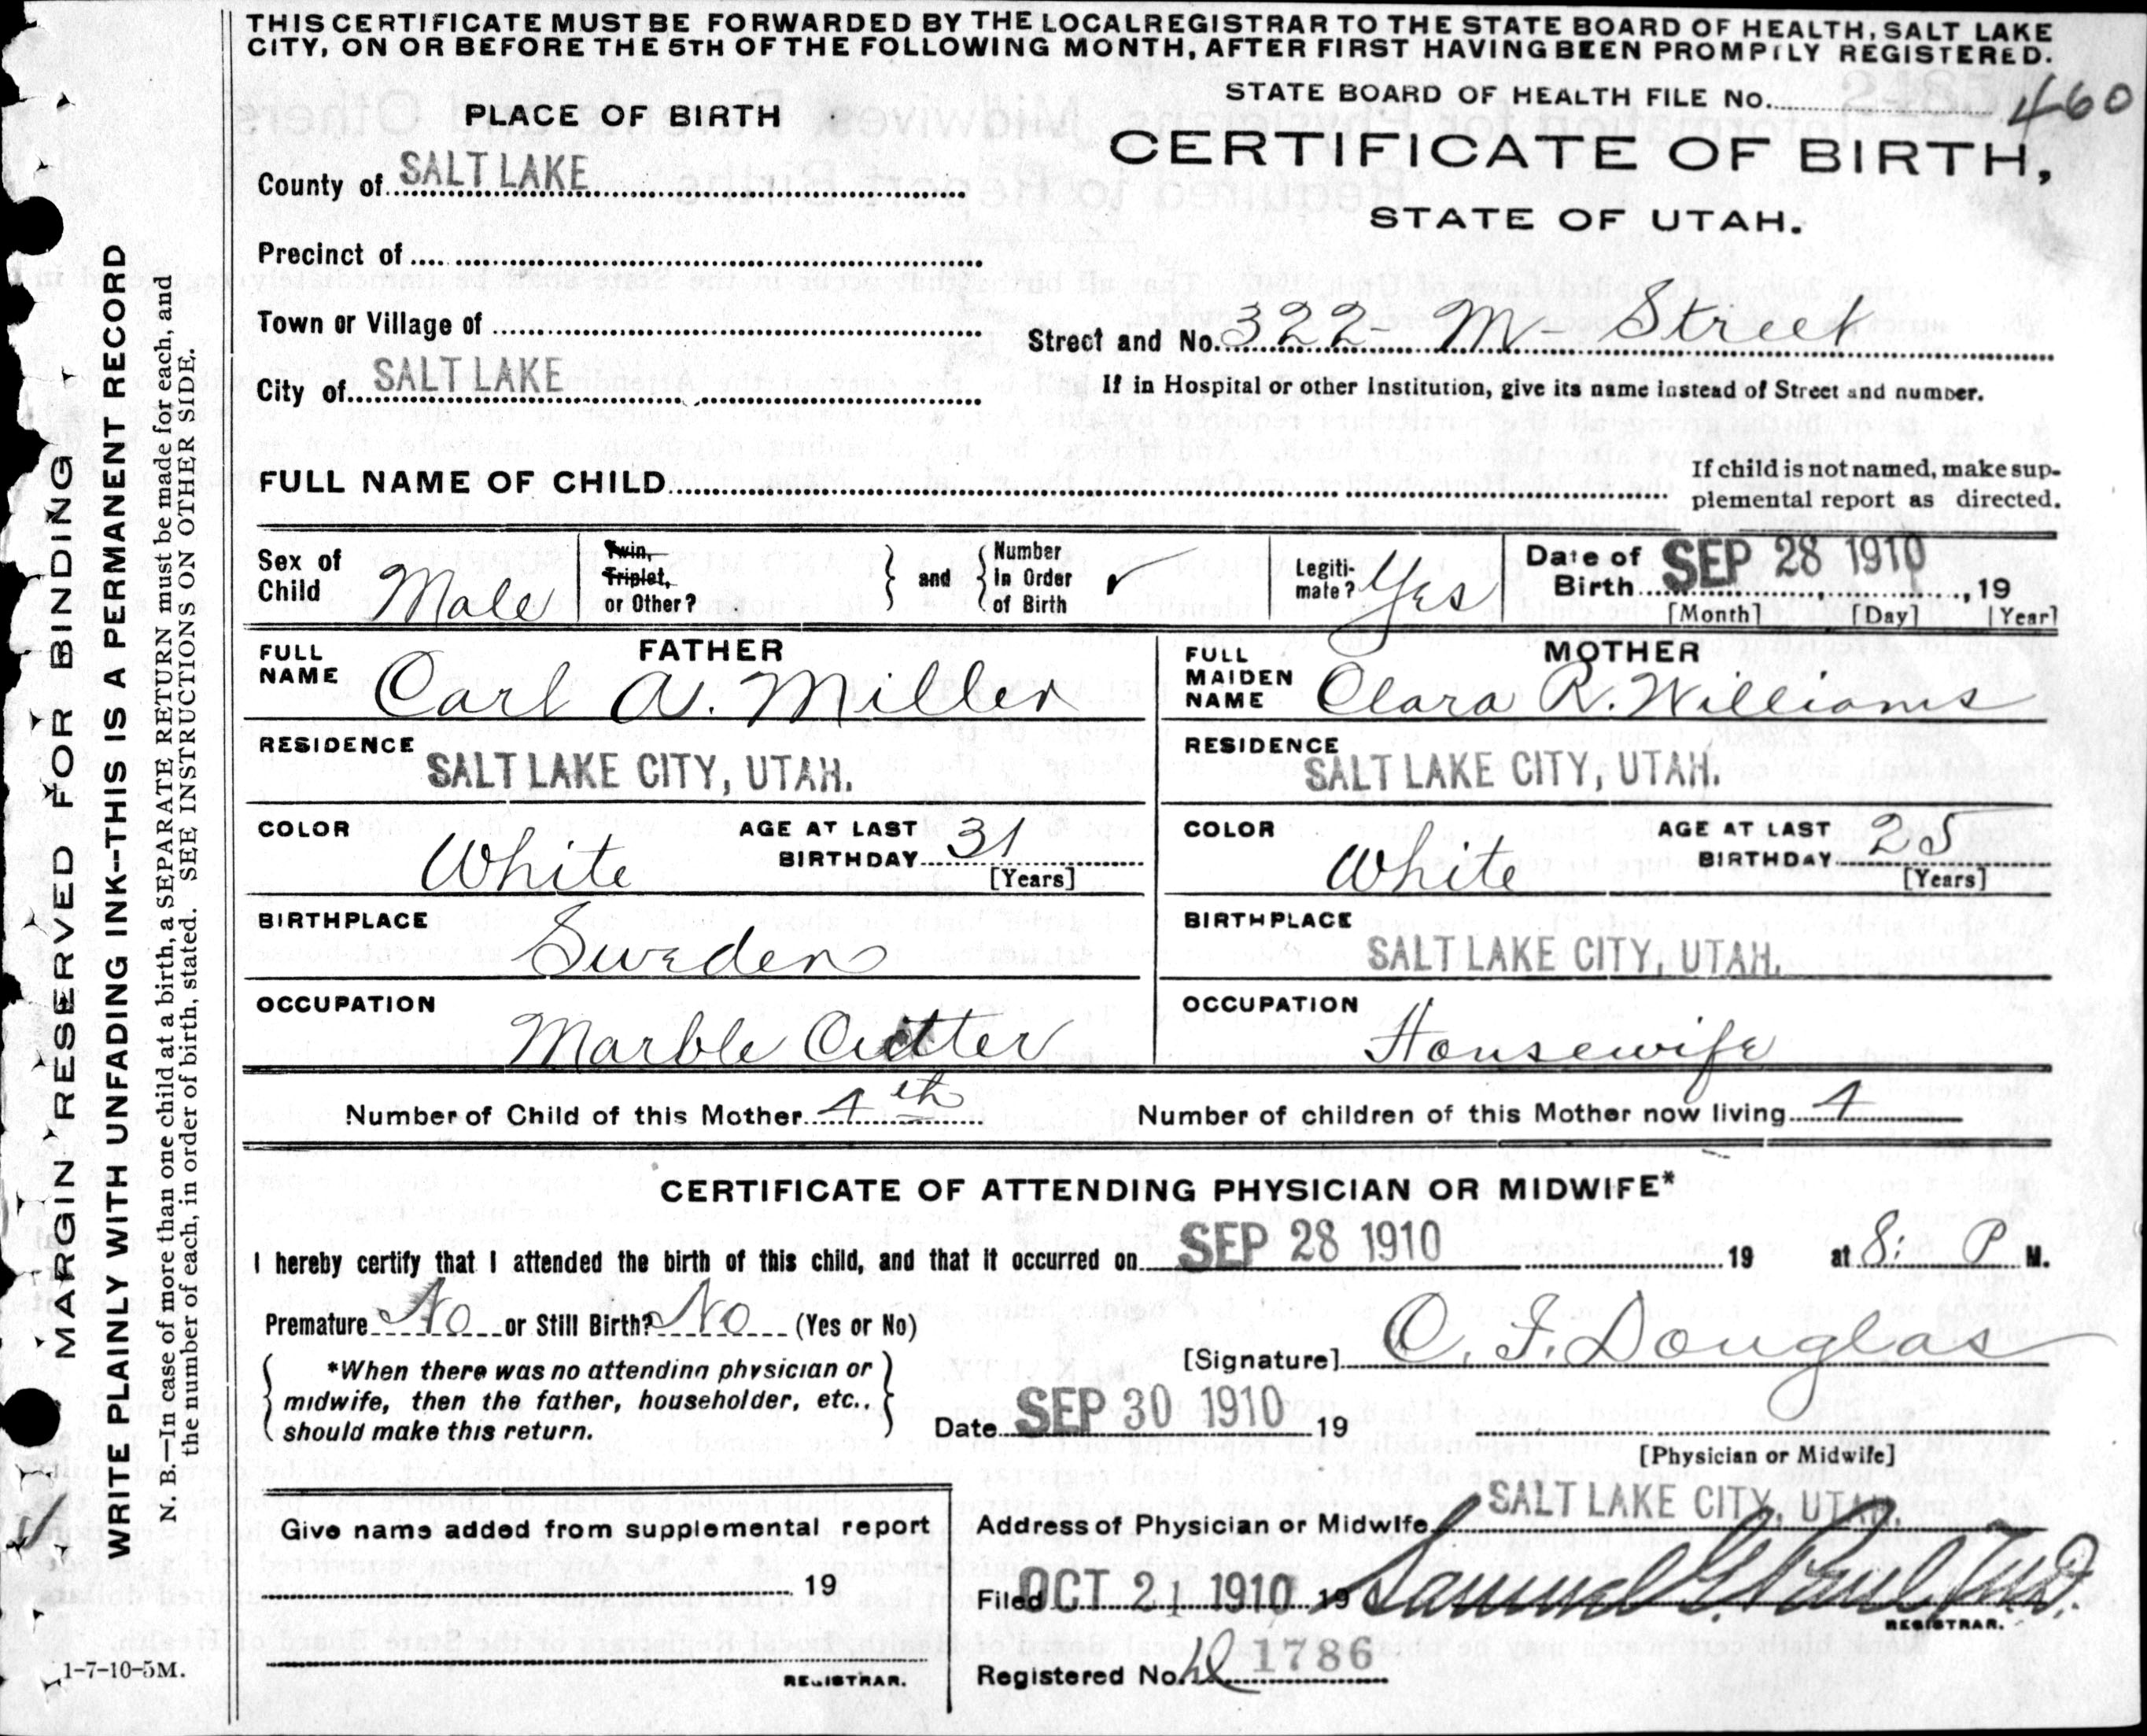 THIS CERTIFICATE MUST BE FORWARDED BY THE LOCAL REGISTRAR TO THE STATE BOARD OF HEALTH, SALT LAKE
CITY, ON OR BEFORE THE 5TH OF THE FOLLOWING MONTH, AFTER FIRST HAVING BEEN PROMPTLY REGISTERED.
STATE BOARD OF HEALTH FILE No. 460
PLACE OF BIRTH
CERTIFICATE OF BIRTH,
STATE OF UTAH.
County of SALT LAKE
Precinct of
Town or Village of
Street and No. 322 - M - Street
City of SALT LAKE
If in Hospital or other Institution, give its name instead of Street and number.
FULL NAME OF CHILD
If child is not named, make sup-
plemental report as directed.
Sex of Child Male
Twin, Triplet, or Other?
and
Number In Order of Birth ✓
Legiti-mate? Yes
Date of Birth SEP 28 1910, 19
[Month] [Day] [Year]
FATHER
FULL NAME Carl A. Miller
MOTHER
FULL MAIDEN NAME Clara R. Williams
RESIDENCE SALT LAKE CITY, UTAH.
RESIDENCE SALT LAKE CITY, UTAH.
COLOR White AGE AT LAST BIRTHDAY 31 [Years]
COLOR White AGE AT LAST BIRTHDAY 25 [Years]
BIRTHPLACE Sweden
BIRTHPLACE SALT LAKE CITY, UTAH.
OCCUPATION Marble Cutter
OCCUPATION Housewife
Number of Child of this Mother 4th Number of children of this Mother now living 4
CERTIFICATE OF ATTENDING PHYSICIAN OR MIDWIFE*
I hereby certify that I attended the birth of this child, and that it occurred on SEP 28 1910 19 at 8: P M.
Premature No or Still Birth? No (Yes or No)
*When there was no attending physician or
midwife, then the father, householder, etc.,
should make this return.
[Signature] C. F. Douglas
Date SEP 30 1910 19
[Physician or Midwife]
Give name added from supplemental report
19
REGISTRAR.
Address of Physician or Midwife SALT LAKE CITY, UTAH.
Filed OCT 21 1910 19 Samuel G. Paul M.D.
REGISTRAR.
Registered No. 1786
MARGIN RESERVED FOR BINDING
WRITE PLAINLY WITH UNFADING INK--THIS IS A PERMANENT RECORD
N. B.—In case of more than one child at a birth, a SEPARATE RETURN must be made for each, and
the number of each, in order of birth, stated. SEE INSTRUCTIONS ON OTHER SIDE.
1-7-10-5M.